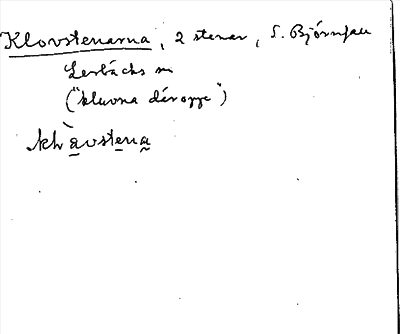 Klovstenarna, 2 stenar, S. Björnfall
Lerbäcks sn
("kluvna däroppe")
klåvstena